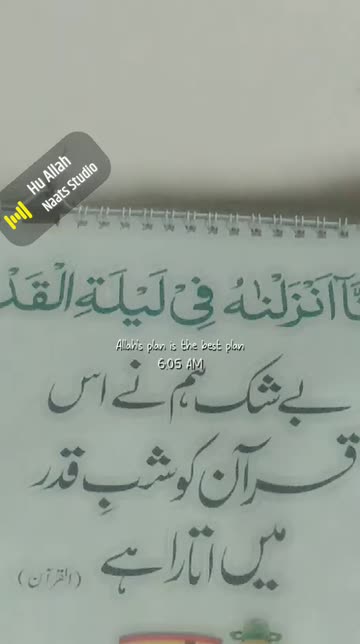 Hu Allah
Naats Studio
نَّآ اَنْزَلْنٰهُ فِیْ لَیْلَةِ الْقَدْ
Allah's plan is the best plan
6:05 AM
بے شک ہم نے اس
قرآن کو شبِ قدر
میں اتارا ہے (القرآن)